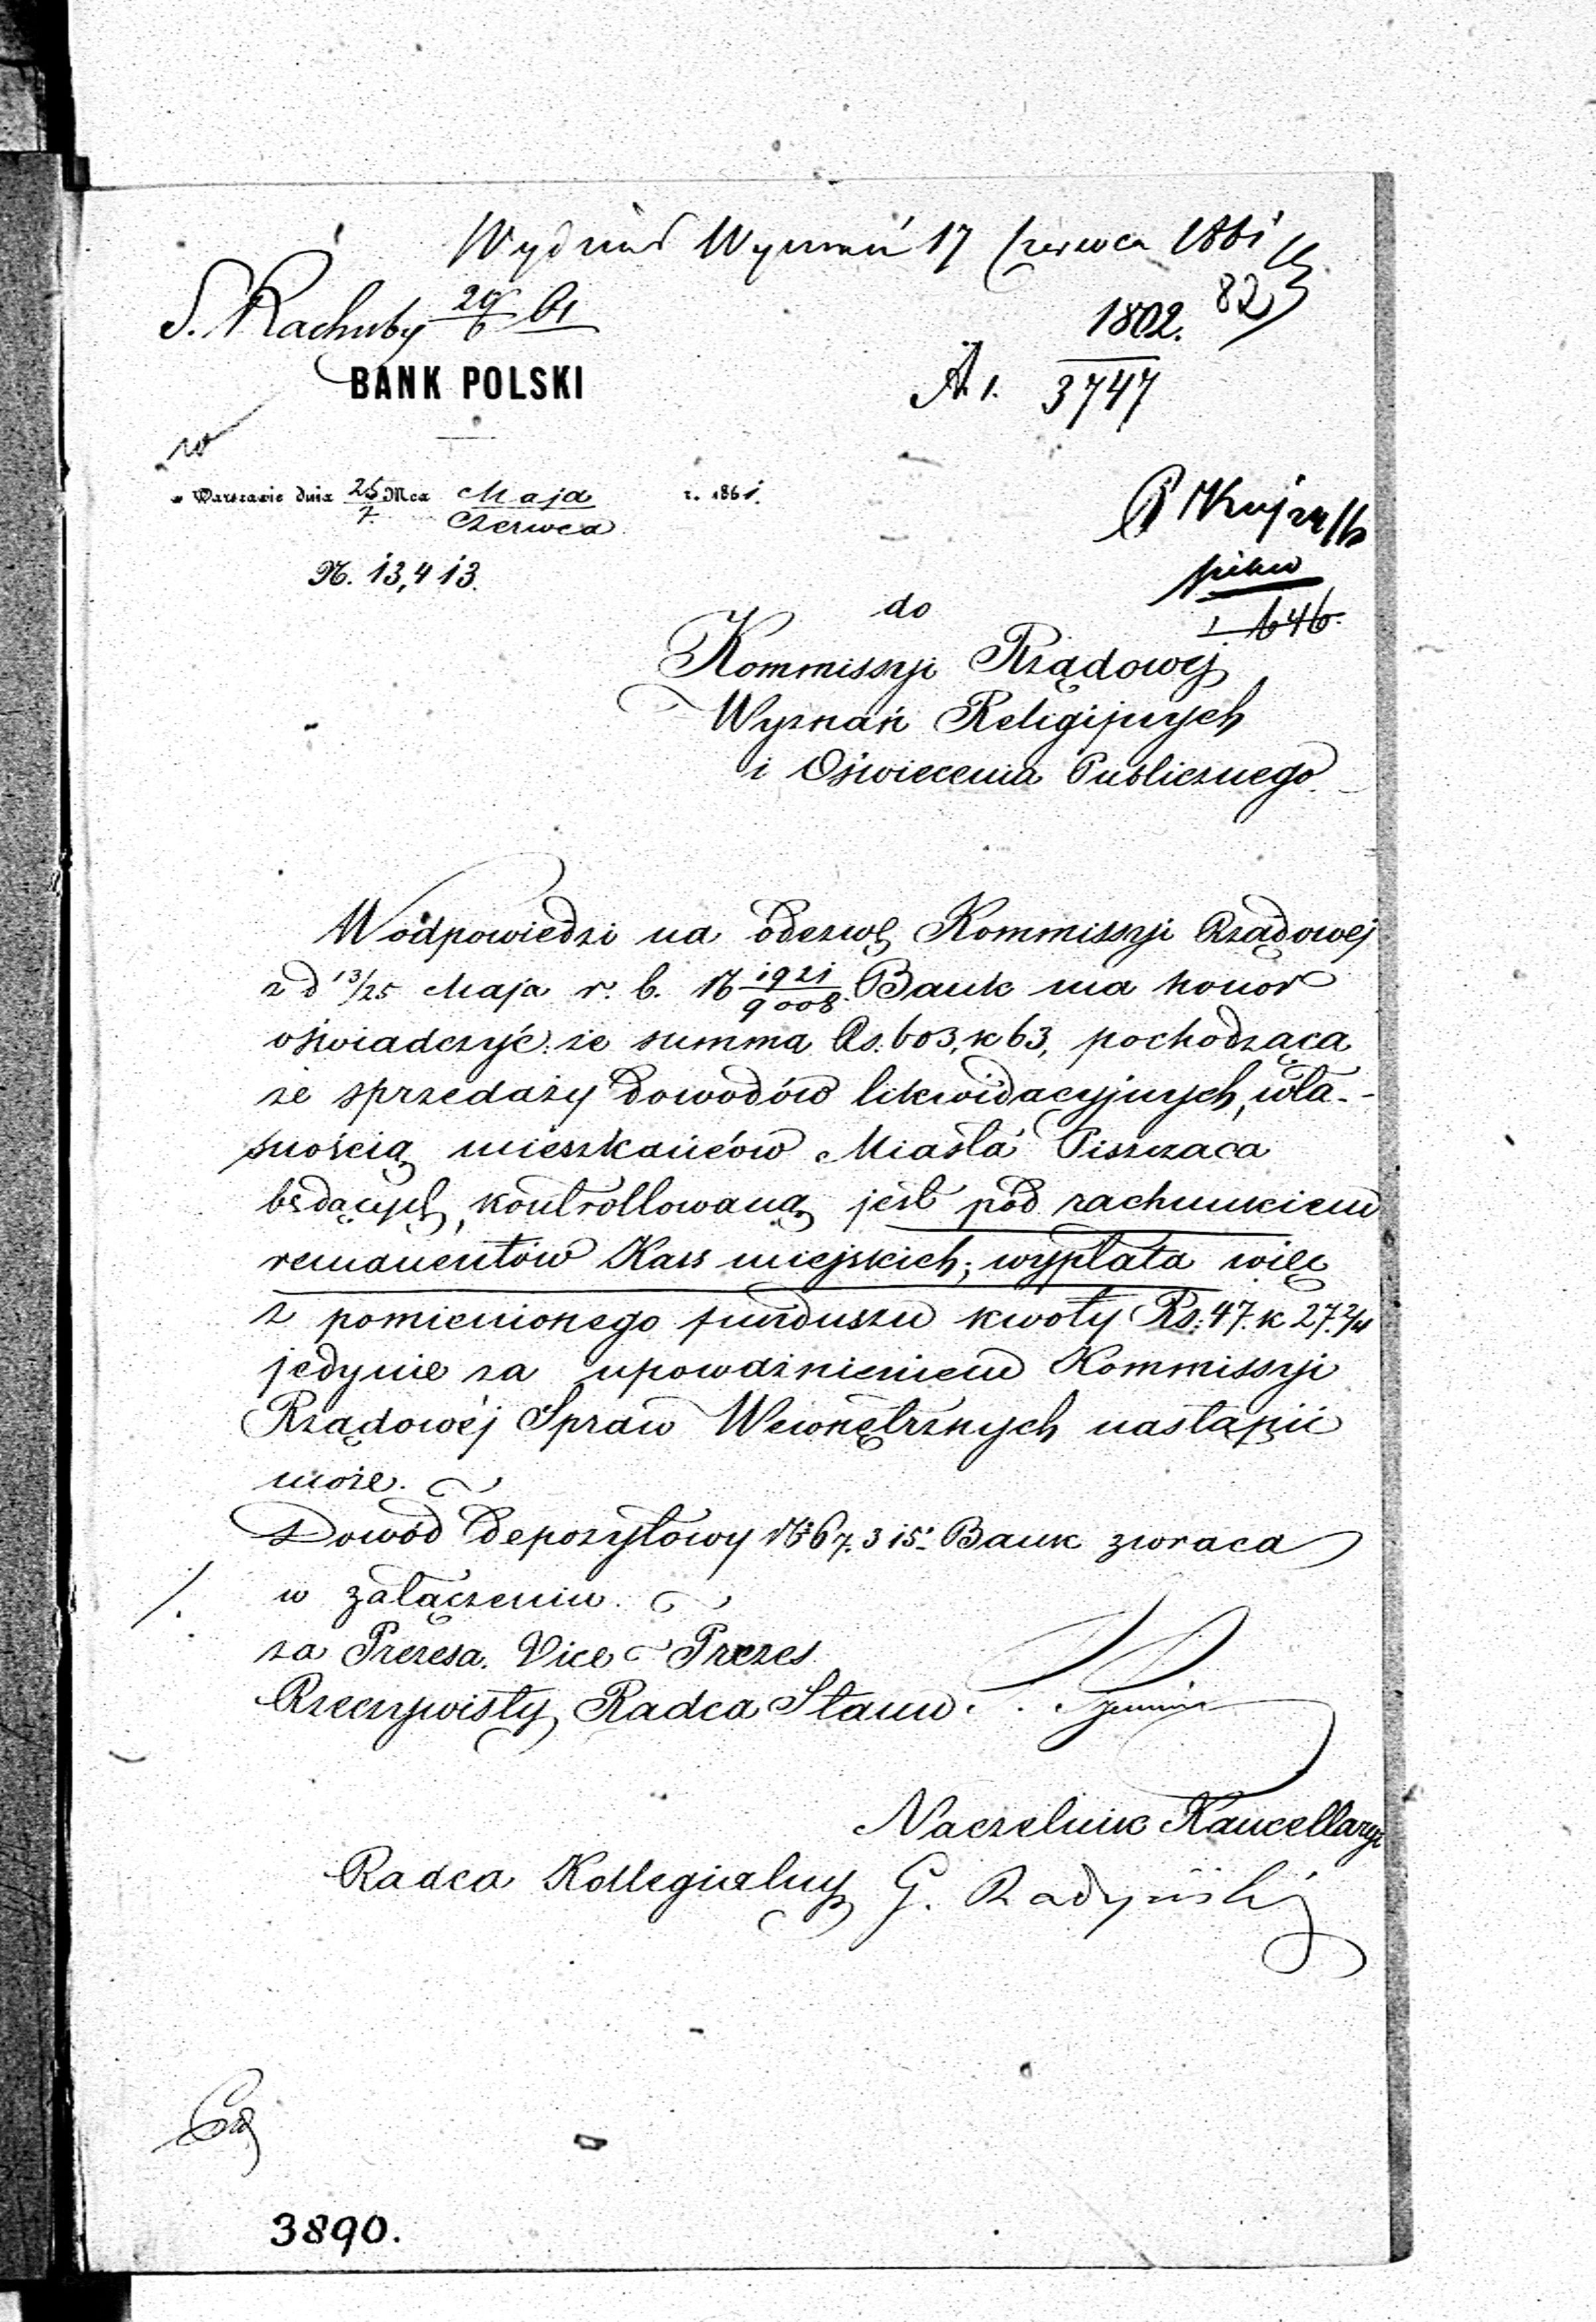 Wydział Wyznań 17 Czerwca 1861
S. Rachuby 24/6 61
1802. 82
BANK POLSKI
A 1. 3747
w Warszawie dnia 25/7. Mca Maja/Czerwca r. 1861.
N. 13,413.
do
Kommissyi Rządowej
Wyznań Religijnych
i Oświecenia Publicznego
W odpowiedzi na odezwę Kommissyi Rządowej
z d 13/25 Maja r. b. N 1921/9008. Bank ma honor
oświadczyć: że summa Rs: 603, k 63, pochodząca
ze sprzedaży dowodów likwidacyjnych, wła-
snością mieszkańców Miasta Piszczaca
będących, kontrollowaną jest pod rachunkiem
remanentów Kass miejskich; wypłata więc
z pomienionego funduszu kwoty Rs: 47. k 27. 3/4
jedynie za upoważnieniem Kommissyi
Rządowéj Spraw Wewnętrznych nastąpić
może.
Dowód depozytowy N 67.315. Bank zwraca
w załączeniu.
za Prezesa. Vice Prezes
Rzeczywisty Radca Stanu
Naczelnik Kancellaryi
Radca Kollegialny G. Radyński
3890.